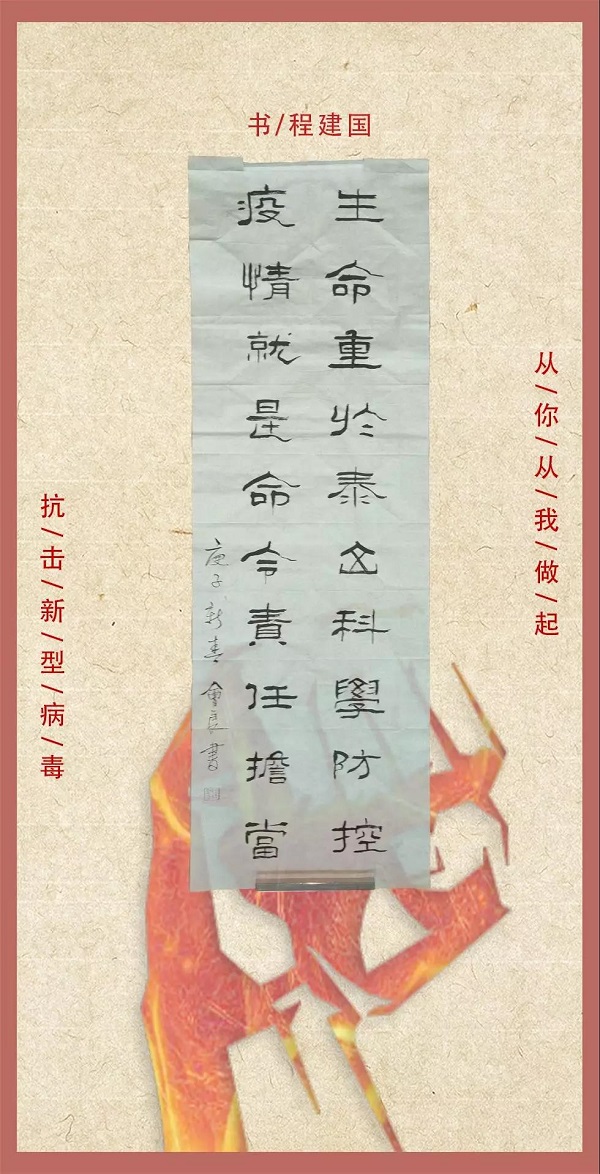 书/程建国
从/你/从/我/做/起
生命重於泰山科學防控
疫情就是命令責任擔當
庚子新春 會良書
抗/击/新/型/病/毒